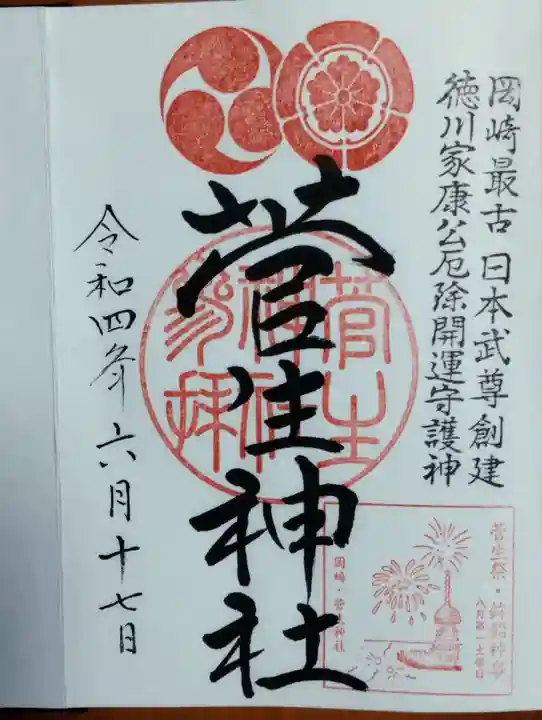 岡崎最古 日本武尊創建
徳川家康公厄除開運守護神
菅生神社
令和四年六月十七日
菅生神社参拝
菅生祭・鉾船神事
八月第一土曜日
岡崎・菅生神社